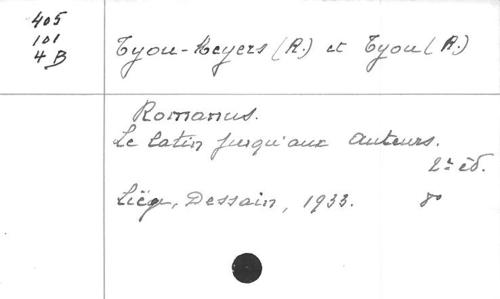 405
101
4 B
Tyou-Meyers (A.) et Tyou (A.)
Romanus.
Le latin jusqu'aux auteurs.
2e éd.
Liége, Dessain, 1933. 8°